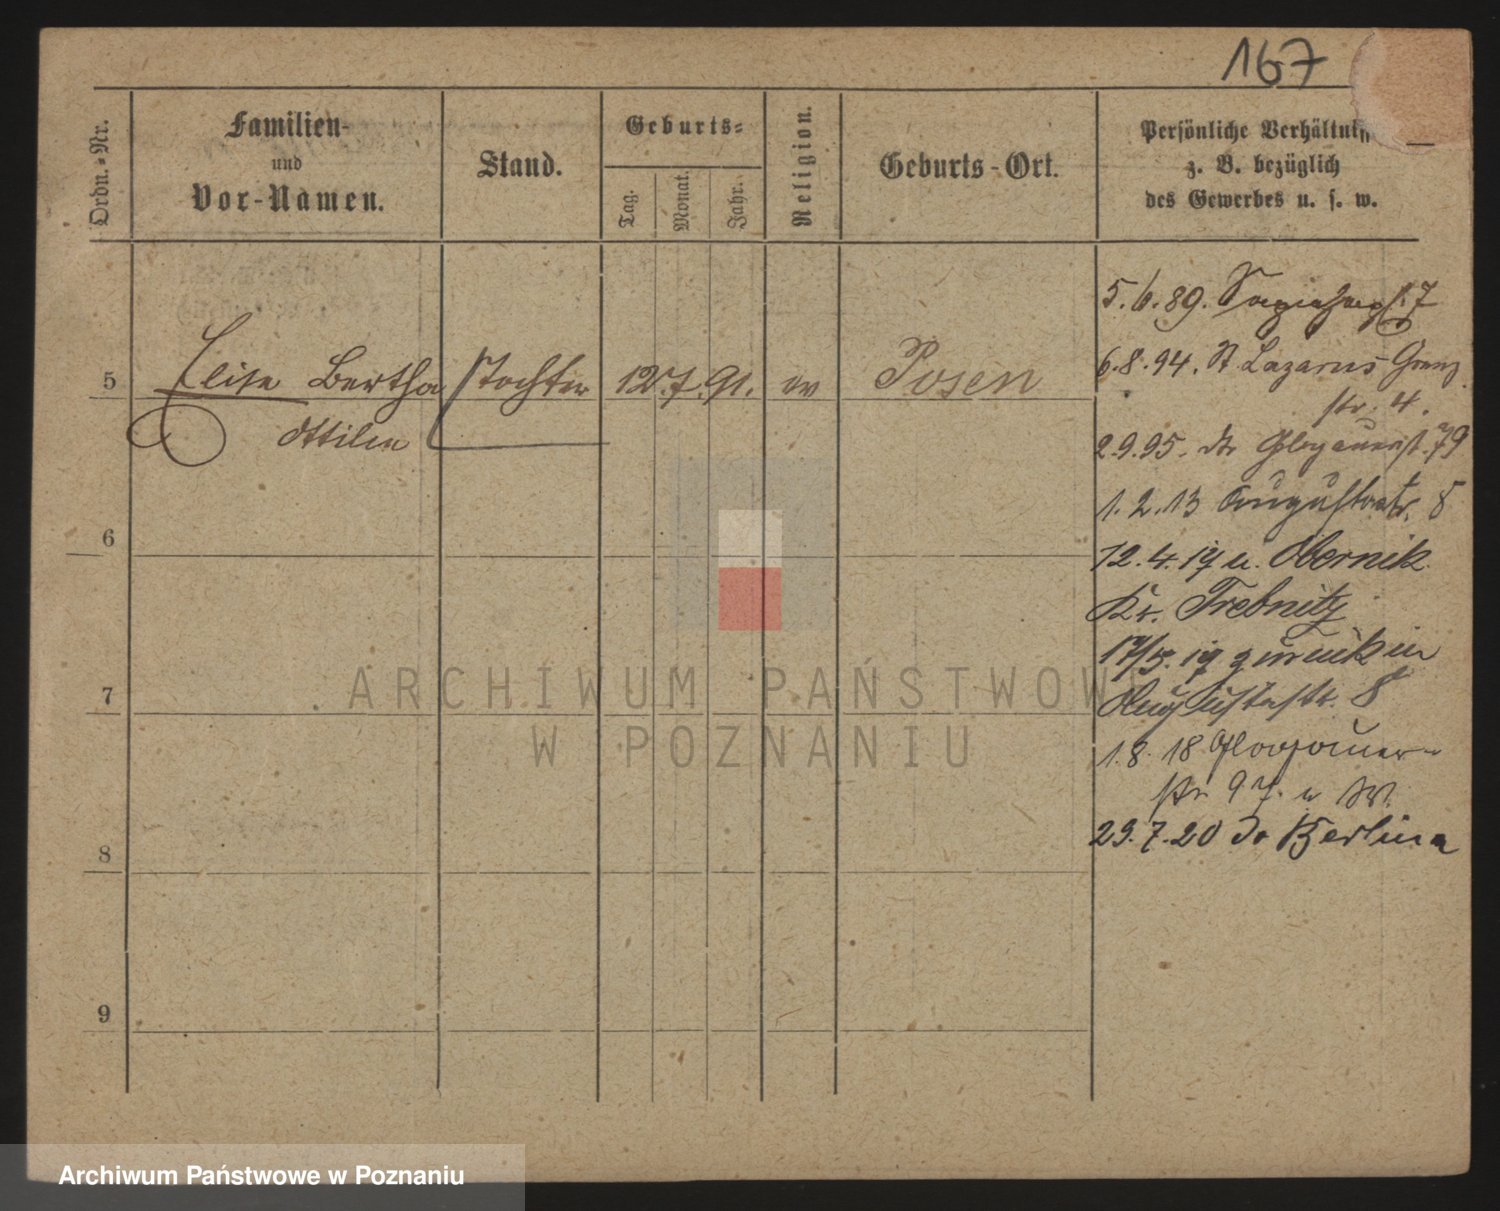 167
Ordn.-Nr.
Familien-
und
Vor-Namen.
Stand.
Geburts-
Tag.
Monat.
Jahr.
Religion.
Geburts-Ort.
Persönliche Verhältniss
z. B. bezüglich
des Gewerbes u. s. w.
5 Elise Bertha Tochter 12 7. 91. ev Posen
Ottilie
6
7
8
9
5. 6. 89. 7
6. 8. 94. St Lazarus Grenz
str. 4.
2. 9. 95. Glogauerst. 79
1. 2. 13 Augustastr. 8
12. 4. 17 n. Obernik
Kr. Trebnitz
17/5. 17 zurück in
Augustastr. 8
1. 8. 18 Glogauer-
str 97.
29. 7. 20 Berlin
ARCHIWUM PAŃSTWOWE
W POZNANIU
Archiwum Państwowe w Poznaniu